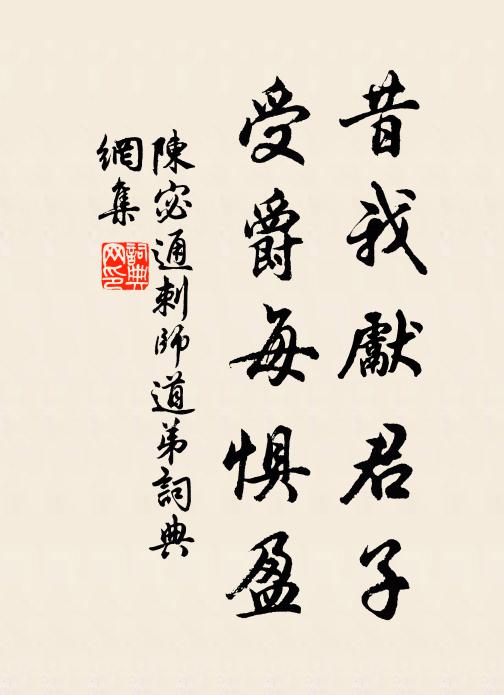 昔我獻君子
受爵每懼盈
陳宓通刺師道弟詞典
網集
詞典
网印